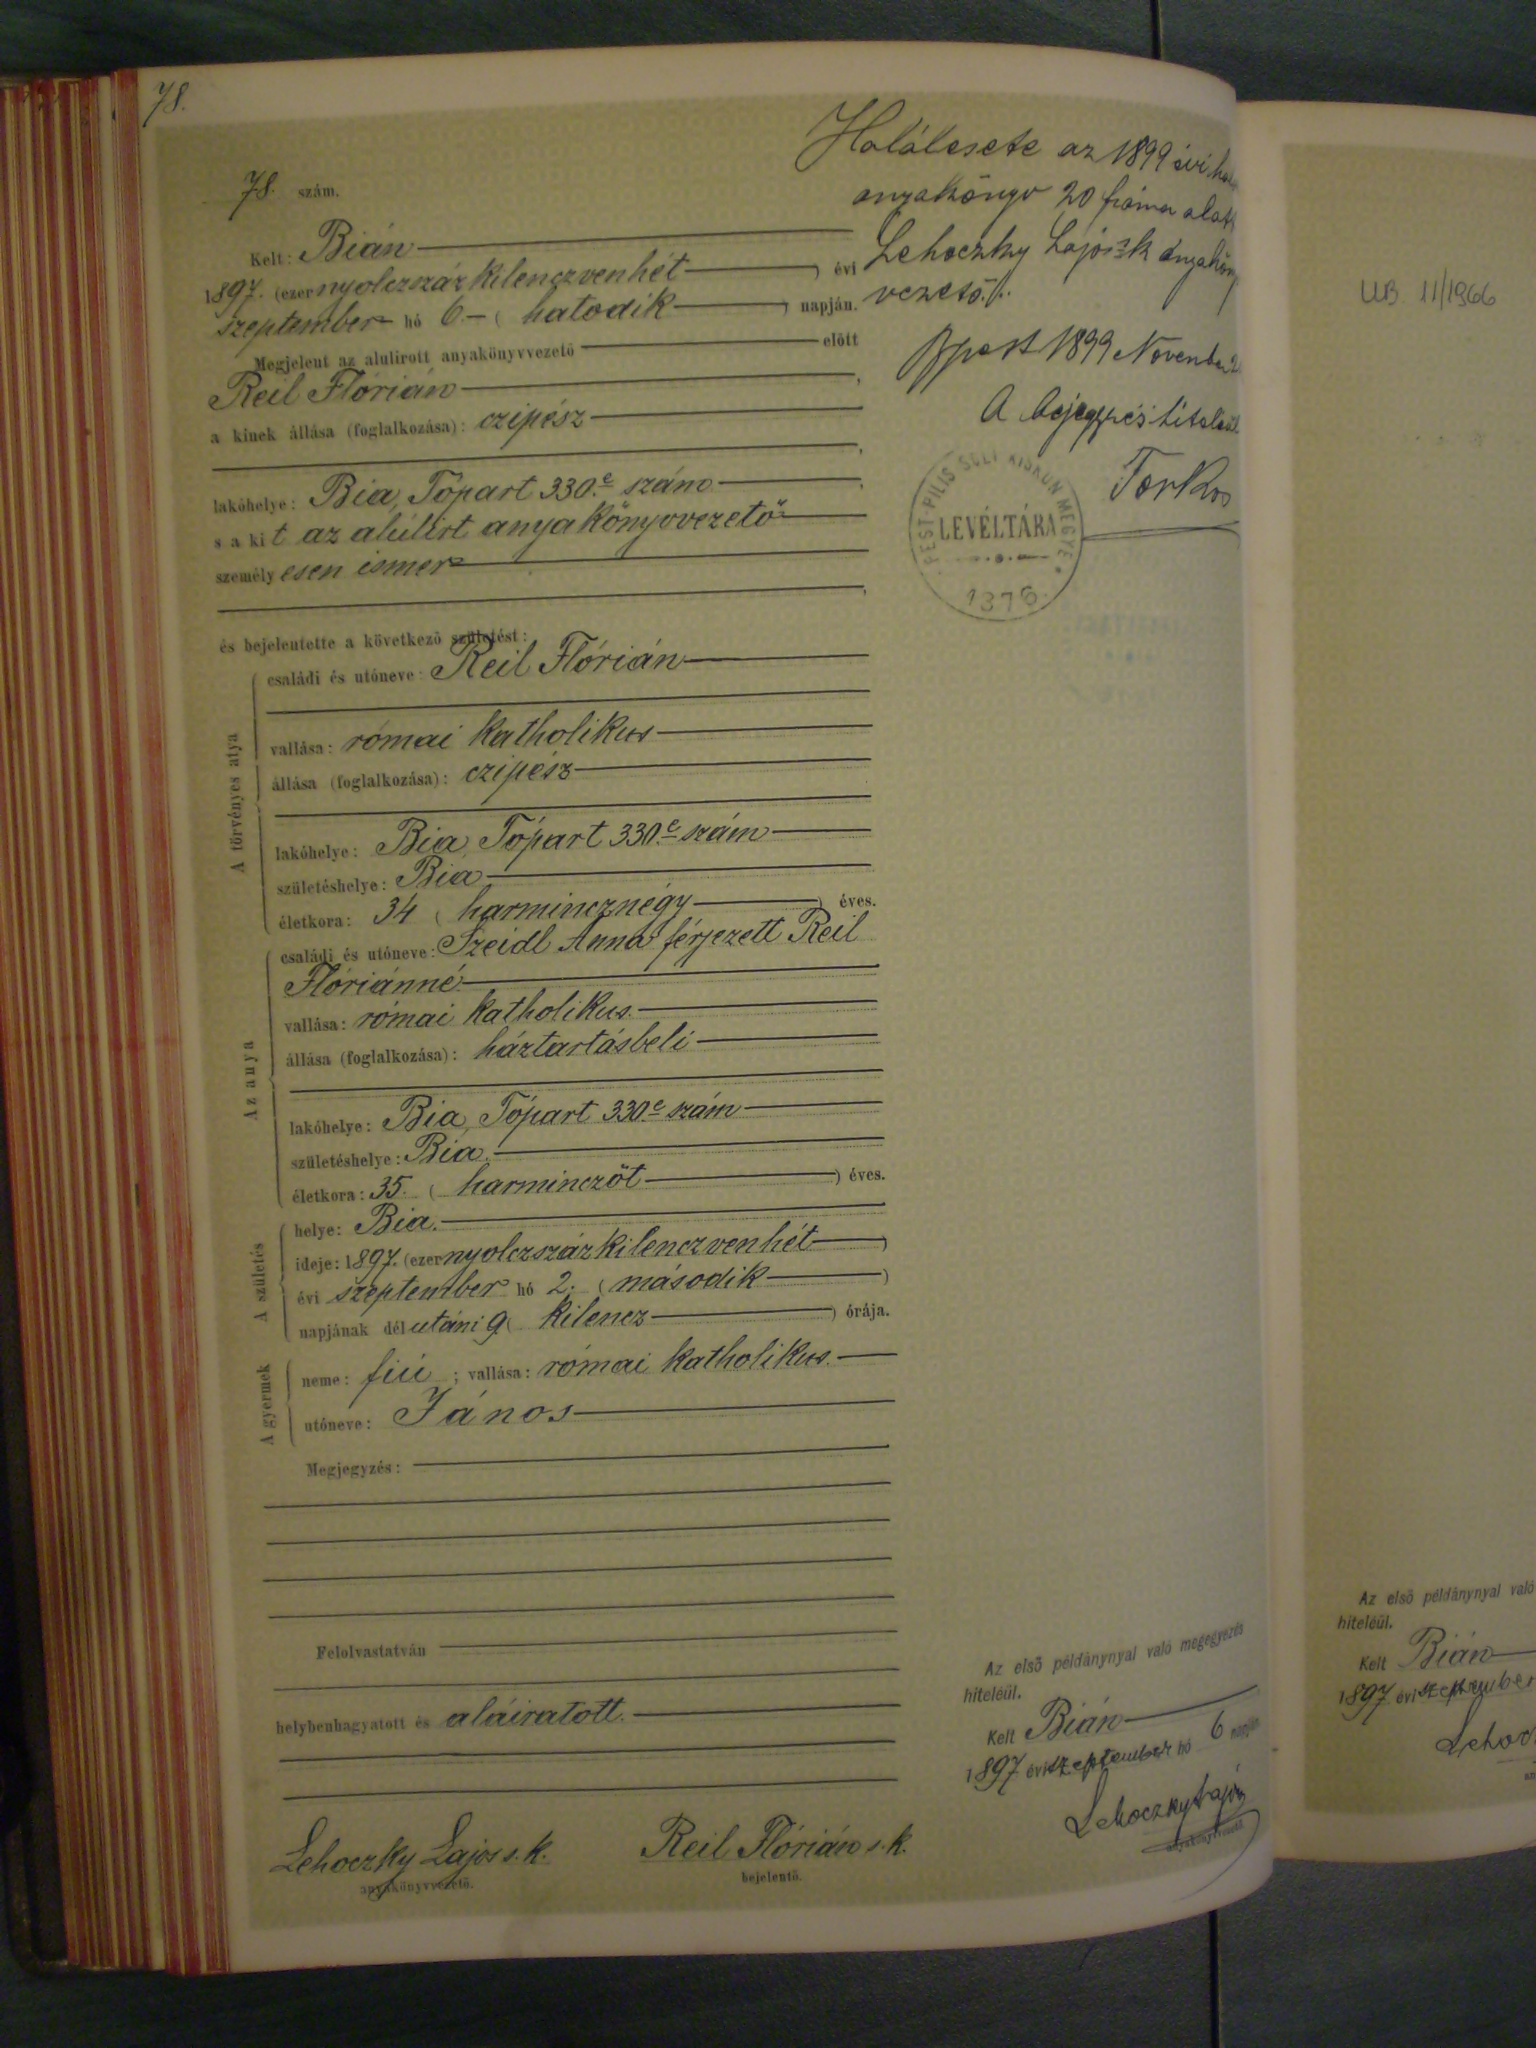 78.
78. szám.
Kelt: Bián
1897. (ezer nyolczszázkilenczvenhét) évi
szeptember hó 6. (hatodik) napján.
Megjelent az alulirott anyakönyvvezető előtt
Reil Flórián,
a kinek állása (foglalkozása): czipész
lakóhelye: Bia, Tópart 330.e szám,
s a kit az alúlírt anyakönyvvezető
személyesen ismer
és bejelentette a következő születést:
A törvényes atya
családi és utóneve: Reil Flórián
vallása: római katholikus
állása (foglalkozása): czipész
lakóhelye: Bia, Tópart 330.e szám
születéshelye: Bia
életkora: 34 (harmincznégy) éves.
Az anya
családi és utóneve: Szeidl Anna férjezett Reil
Flóriánné
vallása: római katholikus.
állása (foglalkozása): háztartásbeli
lakóhelye: Bia, Tópart 330.e szám
születéshelye: Bia.
életkora: 35. (harminczöt) éves.
A születés
helye: Bia.
ideje: 1897. (ezer nyolczszázkilenczvenhét)
évi szeptember hó 2. (második)
napjának délutáni 9 (kilencz) órája.
A gyermek
neme: fiú; vallása: római katholikus.
utóneve: János
Megjegyzés:
Felolvastatván
helybenhagyatott és aláiratott.
Lehoczky Lajos s. k.
anyakönyvvezető.
Reil Flórián s. k.
bejelentő.
Halálesete az 1899 évi
anyakönyv 20 alatt
Lehoczky Lajos s k
vezető
Bpest 1899 November
A bejegyzés hiteléül
Torkos
PEST-PILIS-SOLT-KISKUN MEGYE
LEVÉLTÁRA
1876.
Az első példánynyal való megegyezés
hiteléül.
Kelt Bián
1897 évi szeptember hó 6 napján
Lehoczky Lajos
anyakönyvvezető
UB 11/1966
Az első példánynyal való
hiteléül.
Kelt Bián
1897 évi szeptember